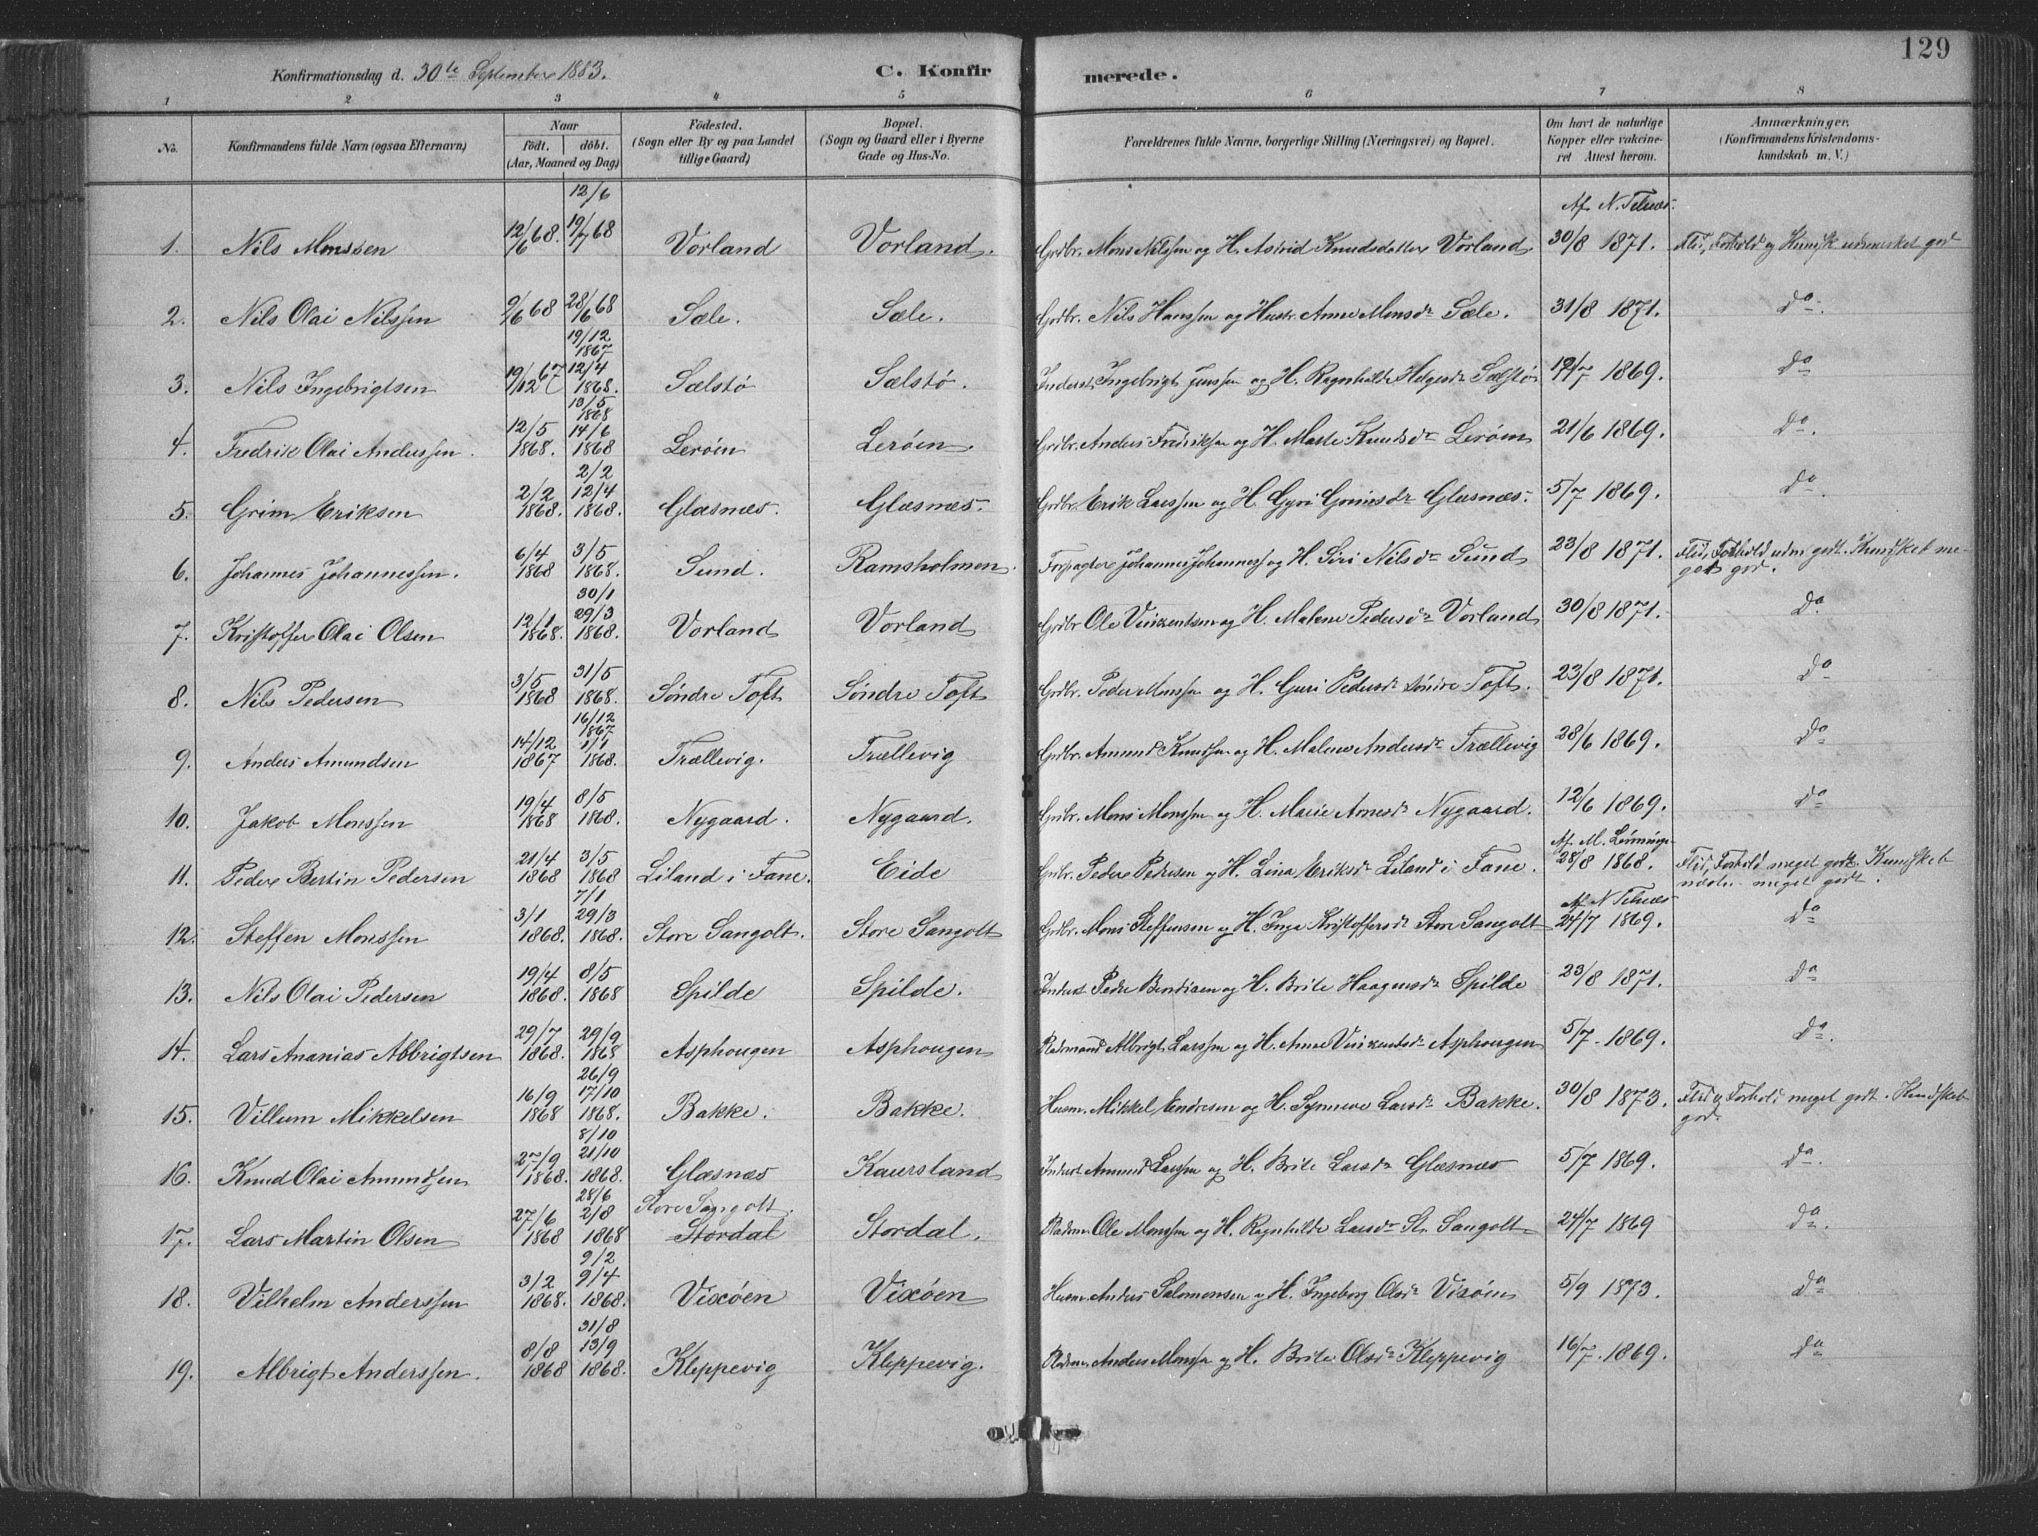 129
Konfirmationsdag d. 30te September 1883. C. Konfirmerede.
1 2 3 4 5 6 7 8
No. Konfirmandens fulde Navn (ogsaa Efternavn) Naar født. døbt. (Aar, Maaned og Dag) Fødested. (Sogn eller By og paa Landet tillige Gaard) Bopæl. (Sogn og Gaard eller i Byerne Gade og Hus-No. Forældrenes fulde Navne, borgerlige Stilling (Næringsvei) og Bopæl. Om havt de naturlige Kopper eller vakcineret Attest herom. Anmærkninger. (Konfirmandens Kristendomskundskab m. V.)
12/6 Af N. Telnæs
1. Nils Monssen 12/6 68. 19/7 68 Vorland Vorland. Grdbr. Mons Nilssen og H. Astrid Knudsdatter Vorland 30/8 1871. Flid, Forhold og Kundsk. udmerket god
2. Nils Olai Nilssen 9/6 68 28/6 68 Sæle. Sæle. Grdbr. Nils Hanssen og Hustr. Anna Monsdr Sæle. 31/8 1871. do.
19/12 1867
3. Nils Ingebrigtsen 19/12 67 12/4 1868. Sælstø Sælstø. Inderst Ingebrigt Jenssen og H. Ragnhilde Helgesdr Sælstø 17/7 1869. do
13/5 1868
4. Fredrik Olai Anderssen. 12/5 1868. 14/6 1868 Lerøen Lerøen. Grdbr. Anders Fredriksen og H. Marte Knudsdr Lerøen 21/6 1869. do.
2/2
5. Grim Eriksen 2/2 1868. 12/4 1868. Glæsnæs. Glæsnæs. Grdbr. Erik Larssen og H. Gyri Grimsdr Glæsnæs. 5/7 1869. do.
6. Johannes Johannessen. 6/4 1868 3/5 1868. Sund. Ramsholmen. Forpagter Johannes Johanness og H. Siri Nilsdr Sund 23/8 1871. Flid, Forhold udm godt. Kundskab meget god.
30/1
7. Kristoffer Olai Olsen 12/1 1868. 29/3 1868. Vorland Vorland Grdbr Ole Vinzentsen og H. Malene Pedersdr Vorland 30/8 1871. do
8. Nils Pedersen 3/5 1868 31/5 1868. Søndre Toft Søndre Toft Grdbr. Peder Monssen og H. Guri Pedersdr Søndre Toft. 23/8 1871. do
16/12 1867
9. Anders Amundsen 14/12 1867 1/1 1868. Trællevig. Trællevig Grdbr. Amund Knudssen og H. Malene Andersdr Trællevig 28/6 1869. do
10. Jakob Monssen 19/4 1868 8/5 1868. Nygaard. Nygaard. Grdbr. Mons Monssen og H. Marie Arnesdr Nygaard. 12/6 1869. do
Af M. Lønninge
11. Peder Bertin Pedersen 21/4 1868 3/5 1868 Liland i Fane. Eide Grdbr. Peder Pedersen og H. Lina Eriksdr Liland i Fane. 28/8 1868. Flid, Forhold meget godt. Kundskab næsten meget godt.
7/1 Af N Telnæs
12. Steffen Monssen 3/1 1868. 29/3 1868. Store Sangolt. Store Sangolt Grdbr. Mons Steffensen og H. Inga Kristoffersdr Store Sangolt 24/7 1869. do
13. Nils Olai Pedersen 19/4 1868. 8/5 1868 Spilde Spilde. Inderst Peder Bendixen og H. Brite Haagensdr Spilde 23/8 1871. do
14. Lars Ananias Albrigtsen 29/7 1868. 29/9 1868 Asphougen Asphougen Pladsmand Albrigt Larssen og H. Anne Vinzentsdr Asphougen 5/7 1869. do.
26/9
15. Villum Mikkelsen 16/9 1868 17/10 1868. Bakke. Bakke. Husm. Mikkel Endresen og H. Synneve Larsdr Bakke. 30/8 1873. Flid og Forhold meget godt. Kundskab god.
8/10
16. Knud Olai Amundsen 27/9 1868. 21/10 1868. Glæsnæs Kaursland Inderst Amund Larssen og H. Brite Larsdr Glæsnæs 5/7 1869. do.
28/6 Store Sangolt.
17. Lars Martin Olsen 27/6 1868 2/8 1868 Stordal Stordal. Pladsm. Ole Monssen og H. Ragnhilde Larsdr St. Sangolt 24/7 1869 do.
9/2
18. Vilhelm Anderssen 3/2 1868. 9/4 1868. Vixøen Vixøen Husm. Anders Salomonsen og H. Ingeborg Olsdr Vixøen 5/9 1873. do
31/8
19. Albrigt Anderssen. 8/8 1868 13/9 1868. Kleppevig Kleppevig. Pladsm. Anders Monssen og H. Brite Olsdr Kleppevig 16/7 1869. do